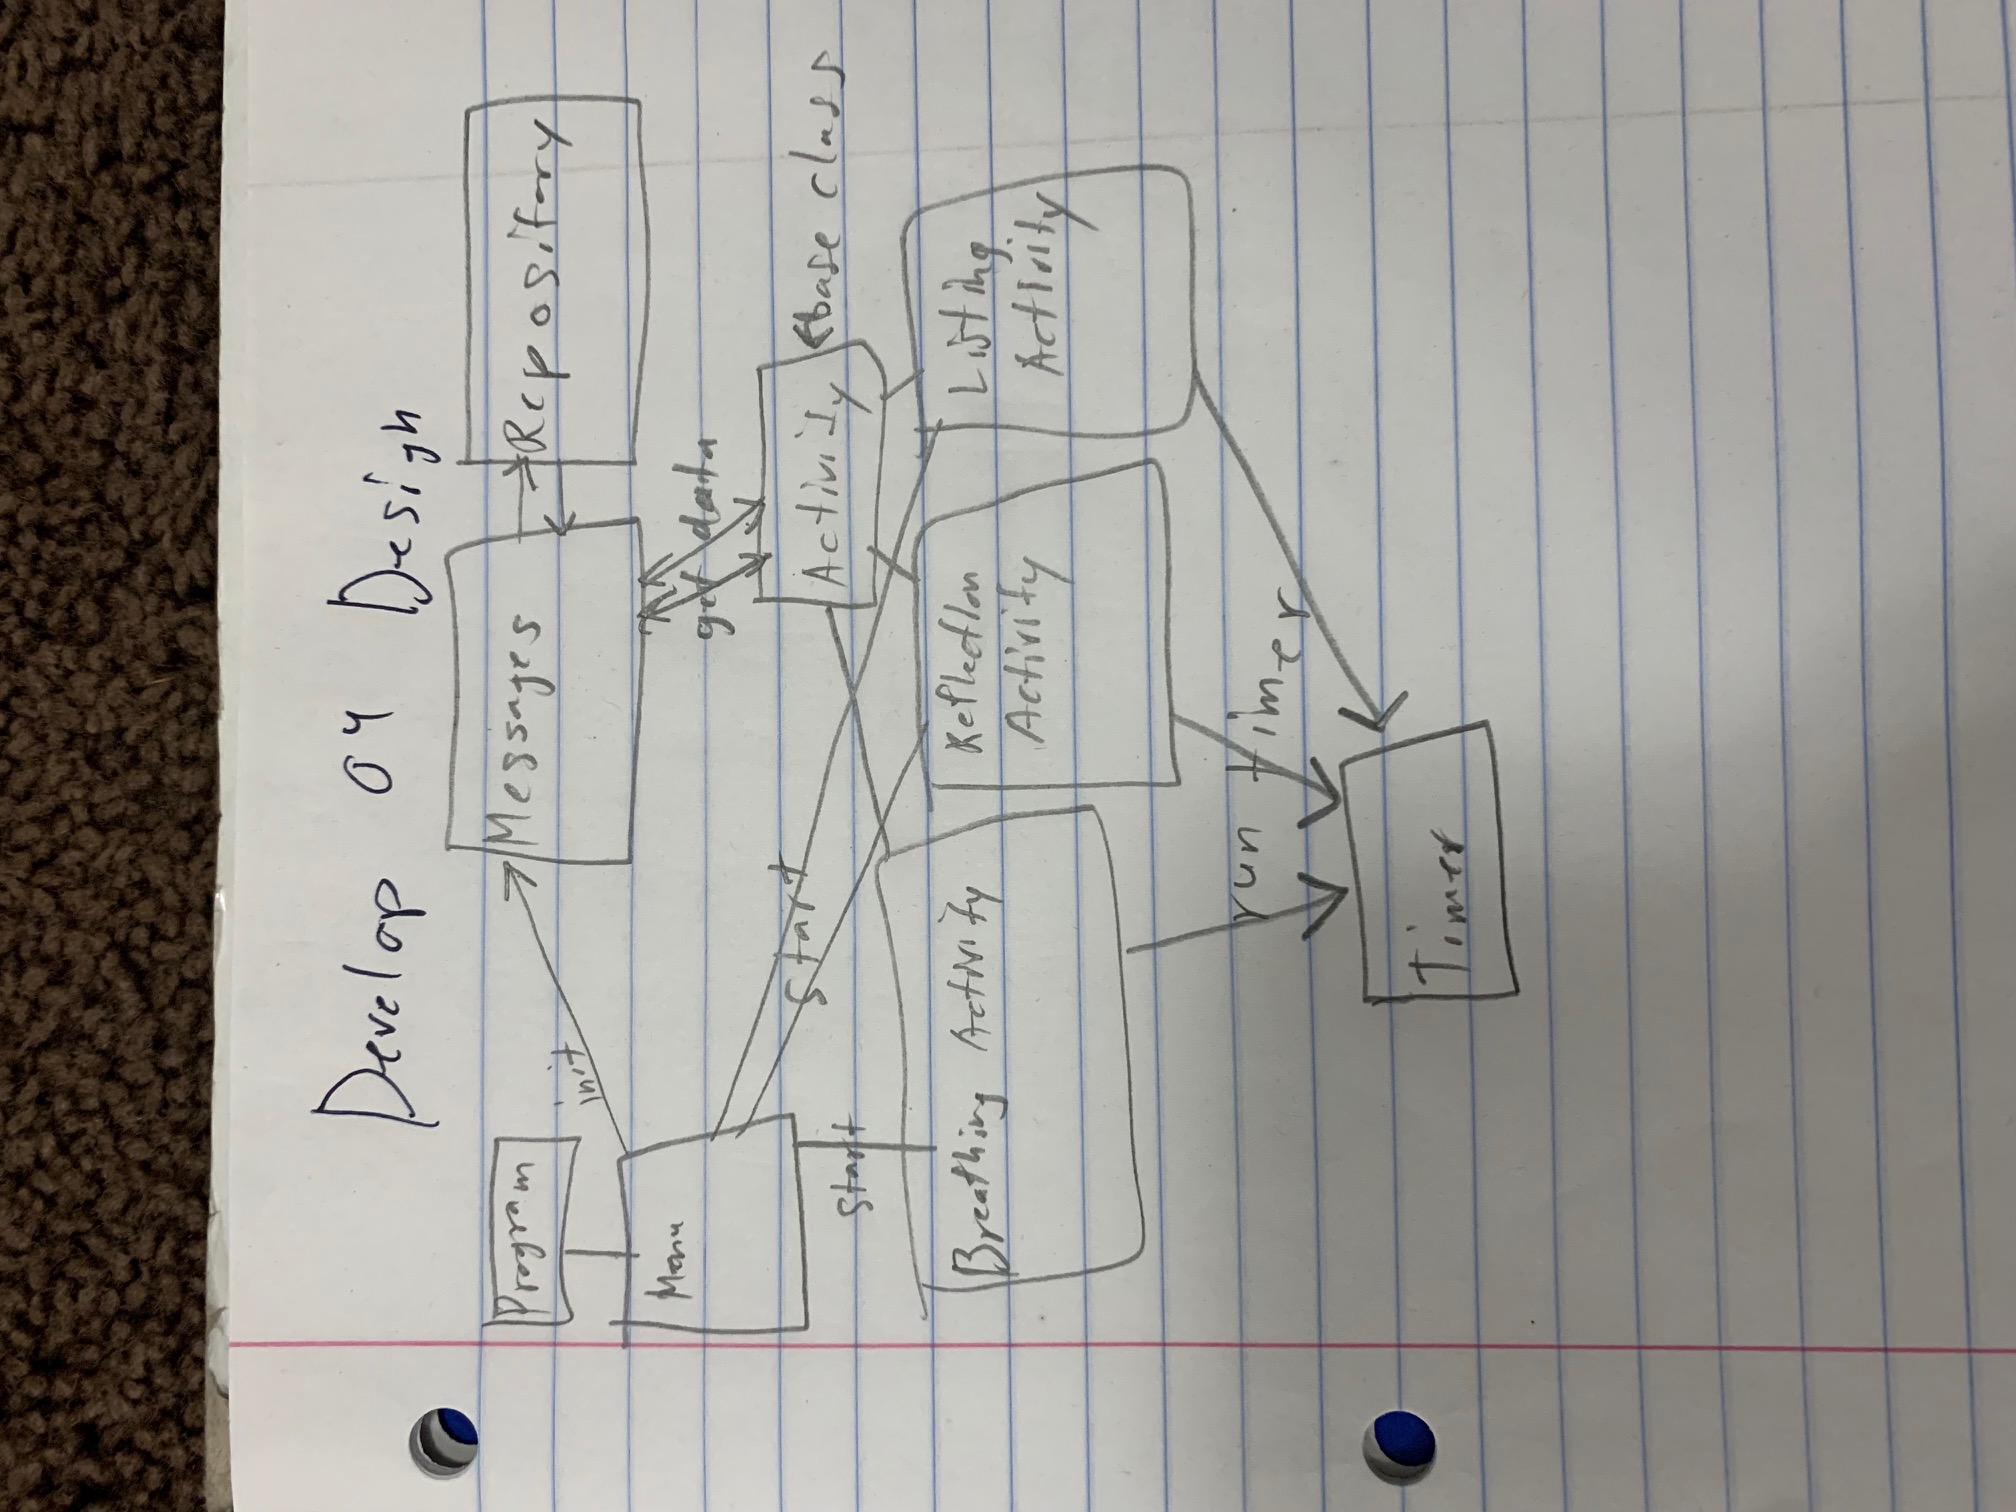 Develop 04 Design
Program
Messages
Repository
init
Menu
get data
start
start
Activity
base class
Breathing Activity
Reflection
Activity
Listing
Activity
run timer
Timer